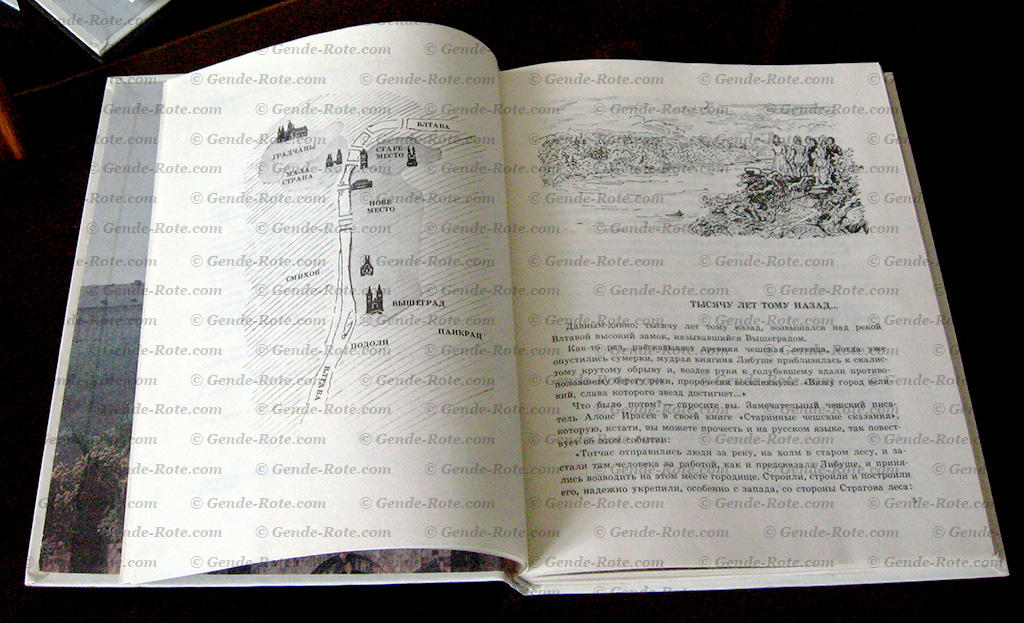 ВЛТАВА
ГРАДЧАНЫ
СТАРЕ
МЕСТО
МАЛА
СТРАНА
НОВЕ
МЕСТО
СМИХОВ
ВЫШЕГРАД
ПАНКРАЦ
ПОДОЛИ
ВЛТАВА
ТЫСЯЧУ ЛЕТ ТОМУ НАЗАД...
Давным-давно, тысячу лет тому назад, возвышался над рекой
Влтавой высокий замок, называвшийся Вышеградом.
Как-то раз, рассказывает древняя чешская легенда, когда уже
опустились сумерки, мудрая княгиня Либуше приблизилась к скалис-
тому крутому обрыву и, воздев руки к голубевшему вдали противо-
положному берегу реки, пророчески воскликнула: «Вижу город вели-
кий, слава которого звезд достигнет...»
Что было потом? — спросите вы. Замечательный чешский писа-
тель Алоис Ирасек в своей книге «Старинные чешские сказания»,
которую, кстати, вы можете прочесть и на русском языке, так повест-
вует об этом событии:
«Тотчас отправились люди за реку, на холм в старом лесу, и за-
стали там человека за работой, как и предсказала Либуше, и приня-
лись возводить на этом месте городище. Строили, строили и построили
его, надежно укрепили, особенно с запада, со стороны Страгова леса:
© Gende-Rote.com